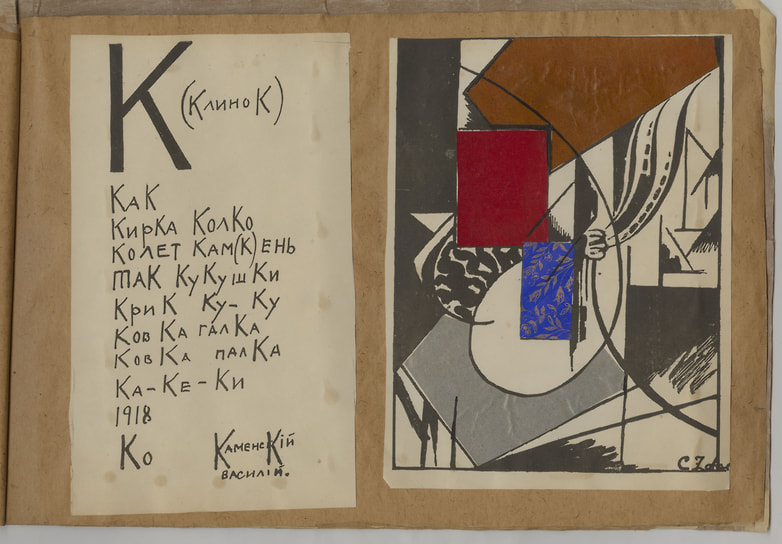 К (КлиноК)
КаК
КирКа КолКо
Колет Кам(К)ень
таК КуКушКи
КриК Ку-Ку
КовКа галКа
КовКа палКа
Ка-Ке-Ки
1918
Ко КаменсКій
василій.